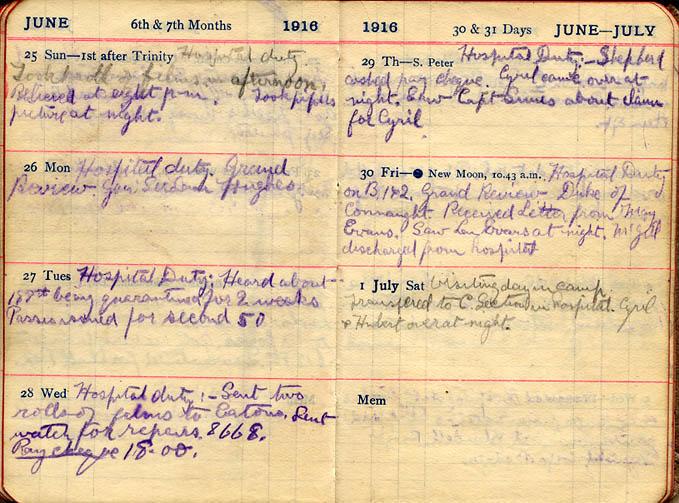 JUNE 6th & 7th Months 1916
25 Sun—1st after Trinity Hospital duty
Took roll of films in afternoon.
Relieved at eight p.m. Took
picture at night.
26 Mon Hospital duty. Grand
Review. Gen Hughes
27 Tues Hospital Duty: Heard about
being quarantined for 2 weeks
for second 50
28 Wed Hospital duty:- Sent two
rolls of films to Eatons. Sent
watch for repairs. 8668.
Pay cheque 18.00.
1916 30 & 31 Days JUNE—JULY
29 Th—S. Peter Hospital Duty:- Shepherd
cashed pay cheque. Cyril came over at
night. Saw Capt about
for Cyril
30 Fri—● New Moon, 10.43 a.m. Hospital Duty
on B. 1&2. Grand Review Duke of
Connaught. Received Letter from May
Evans. Saw Len Ovars at night. McGill
discharged from hospital
1 July Sat Visiting day in camp
Transfered to C. Section in Hospital. Cyril
& Hubert over at night.
Mem